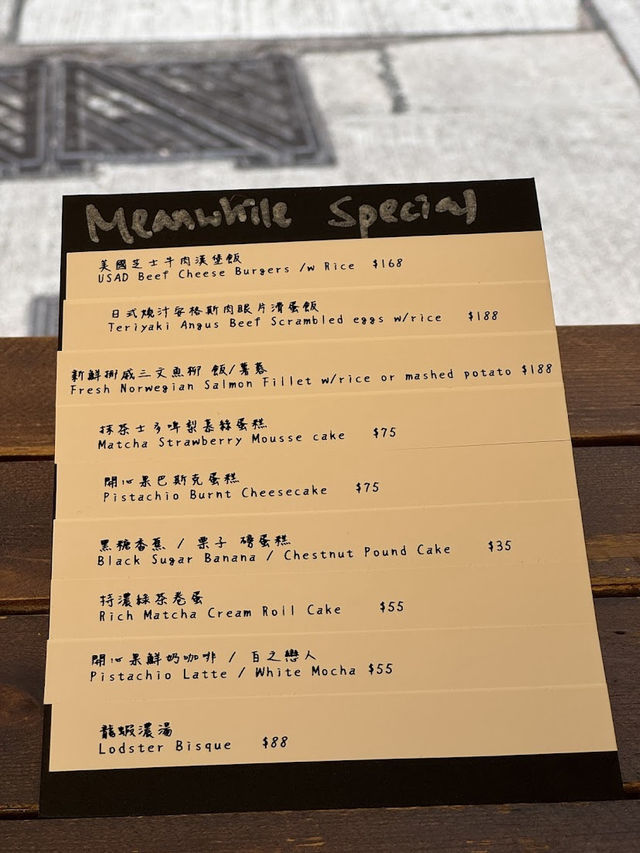 Meanwhile Special
美國芝士牛肉漢堡飯
USAD Beef Cheese Burgers /w Rice $168
日式燒汁安格斯肉眼片滑蛋飯
Teriyaki Angus Beef Scrambled eggs w/rice $188
新鮮挪威三文魚柳 飯/薯蓉
Fresh Norwegian Salmon Fillet w/rice or mashed potato $188
抹茶士多啤梨慕絲蛋糕
Matcha Strawberry Mousse cake $75
開心果巴斯克蛋糕
Pistachio Burnt Cheesecake $75
黑糖香蕉 / 栗子 磅蛋糕
Black Sugar Banana / Chestnut Pound Cake $35
特濃綠茶卷蛋
Rich Matcha Cream Roll Cake $55
開心果鮮奶咖啡 / 白之戀人
Pistachio Latte / White Mocha $55
龍蝦濃湯
Lodster Bisque $88